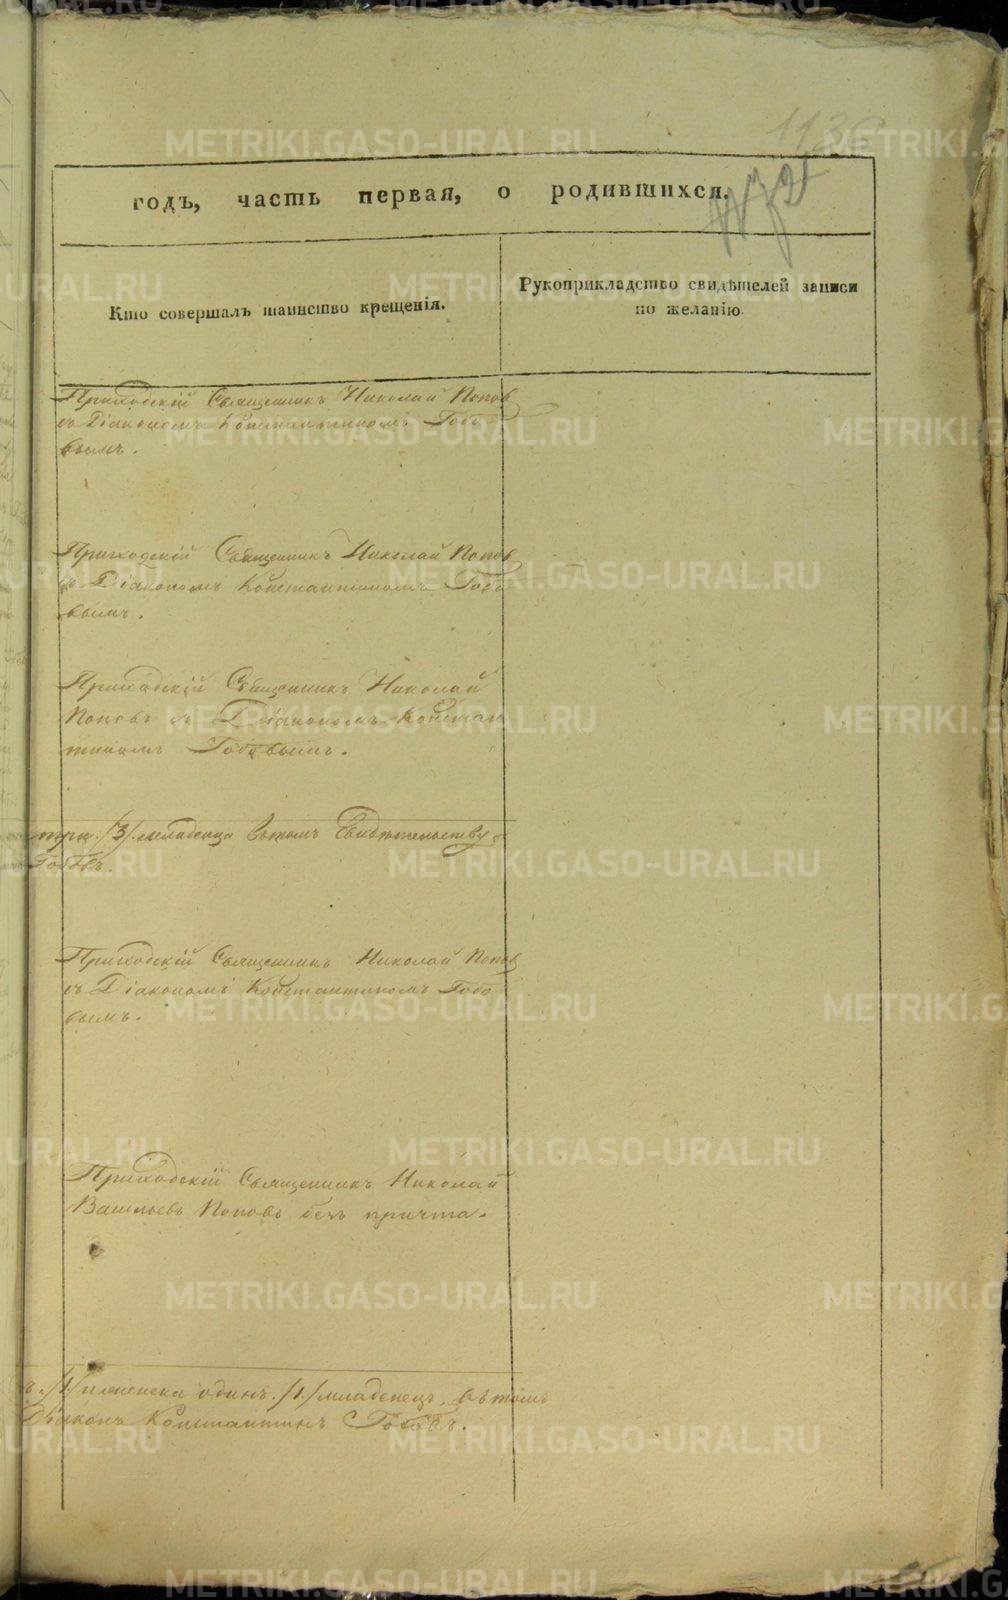 1136
годъ, часть первая, о родившихся.
Кто совершалъ таинство крещенія.
Рукоприкладство свидѣтелей записи
по желанію.
Приходскій Священникъ Николай Попов
съ Діакономъ Константиномъ Гобо
вымъ.
Приходскій Священникъ Николай Попов
съ Діакономъ Константиномъ Гобо
вымъ.
Приходскій Священникъ Николай
Поповъ съ Діакономъ Констан
тиномъ Гобовымъ.
три /3/ младенца Въ томъ Свидѣтельству
Гобовъ.
Приходскій Священникъ Николай Попов
съ Діакономъ Константиномъ Гобо
вымъ.
Приходскій Священникъ Николай
Васильевъ Поповъ безъ причта.
/1/ женска одинъ /1/ младенецъ. Въ томъ
Діаконъ Константинъ Гобовъ.
METRIKI.GASO-URAL.RU